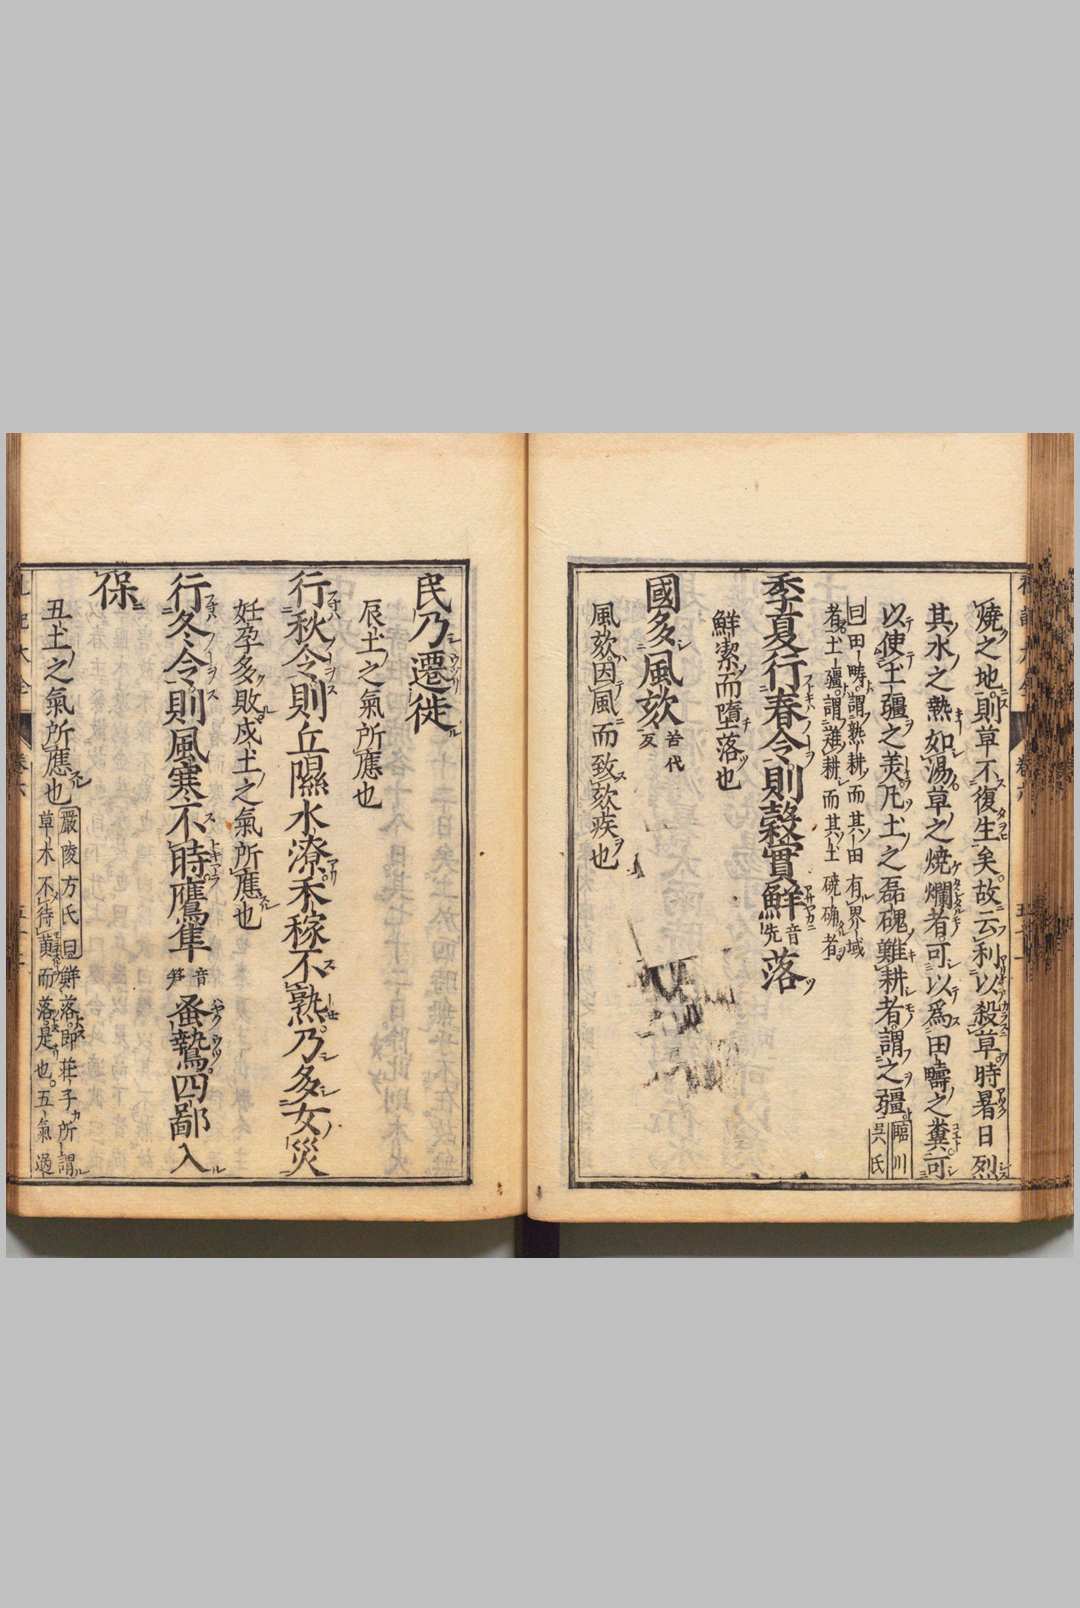 燒之地則草不復生矣故云利以殺草時暑日烈
其水之熱如湯草之燒爛者可以爲田疇之糞可
以使土疆之美凡土之磊磈難耕者謂之疆臨川
吳氏
曰田疇謂熟耕而其田有界域
者土疆謂難耕而其土磽确者
季夏行春令則穀實鮮音先落
鮮潔而墮落也
國多風欬苦代反
風欬因風而致欬疾也
民乃遷徙
辰土之氣所應也
行秋令則丘隰水潦禾稼不熟乃多女災
妊孕多敗戌土之氣所應也
行冬令則風寒不時鷹隼音笋蚤鷙四鄙入
保
丑土之氣所應也嚴陵方氏曰鮮落即莊子所謂
草木不待黃而落是也五氣過